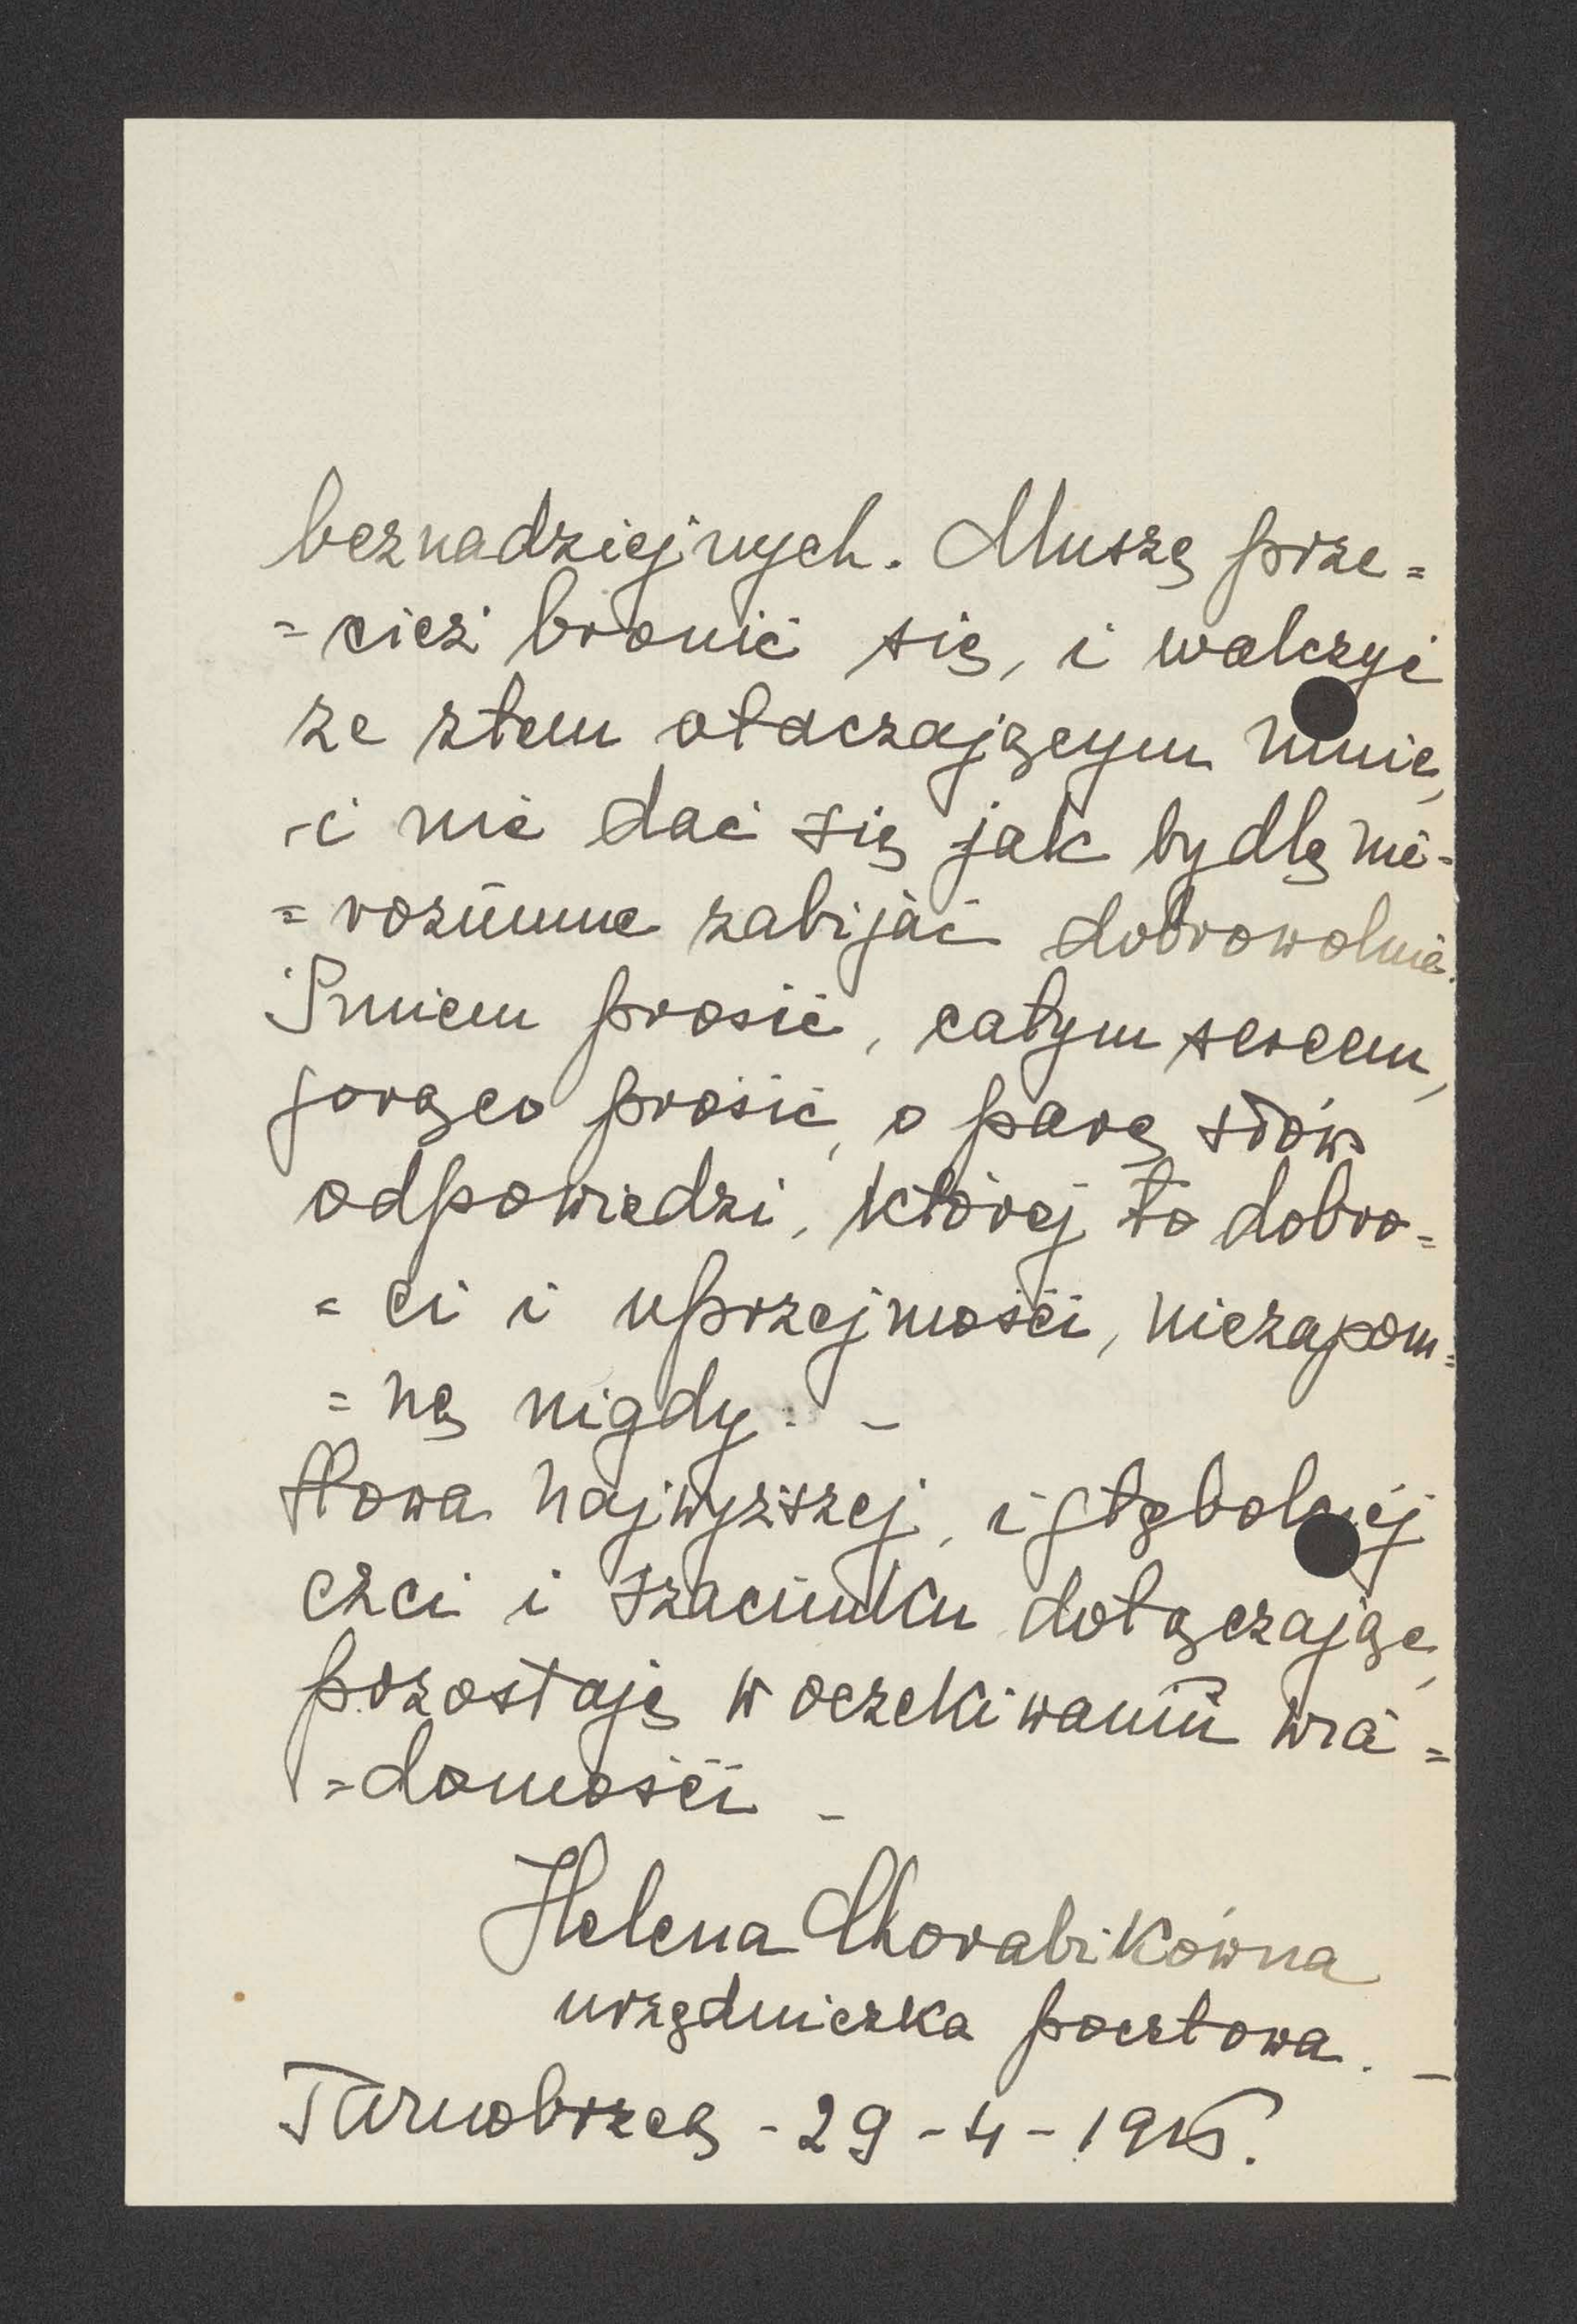 beznadziejnych. Muszę prze=
=cież bronić się, i walczyć
ze złem otaczającym mnie,
-i nie dać się jak bydlę nie-
=rozumne zabijać dobrowolnie.
Śmiem prosić, całym sercem,
gorąco prosić, o parę słów
odpowiedzi, której to dobro-
=ci i uprzejmości, niezapom=
=nę nigdy. -
Słowa najwyższej, i głębokiej
czci i szacunku dołączając,
pozostaję w oczekiwaniu wia=
=domości -
Helena Chorabikówna
urzędniczka pocztowa. -
Tarnobrzeg - 29 - 4 -